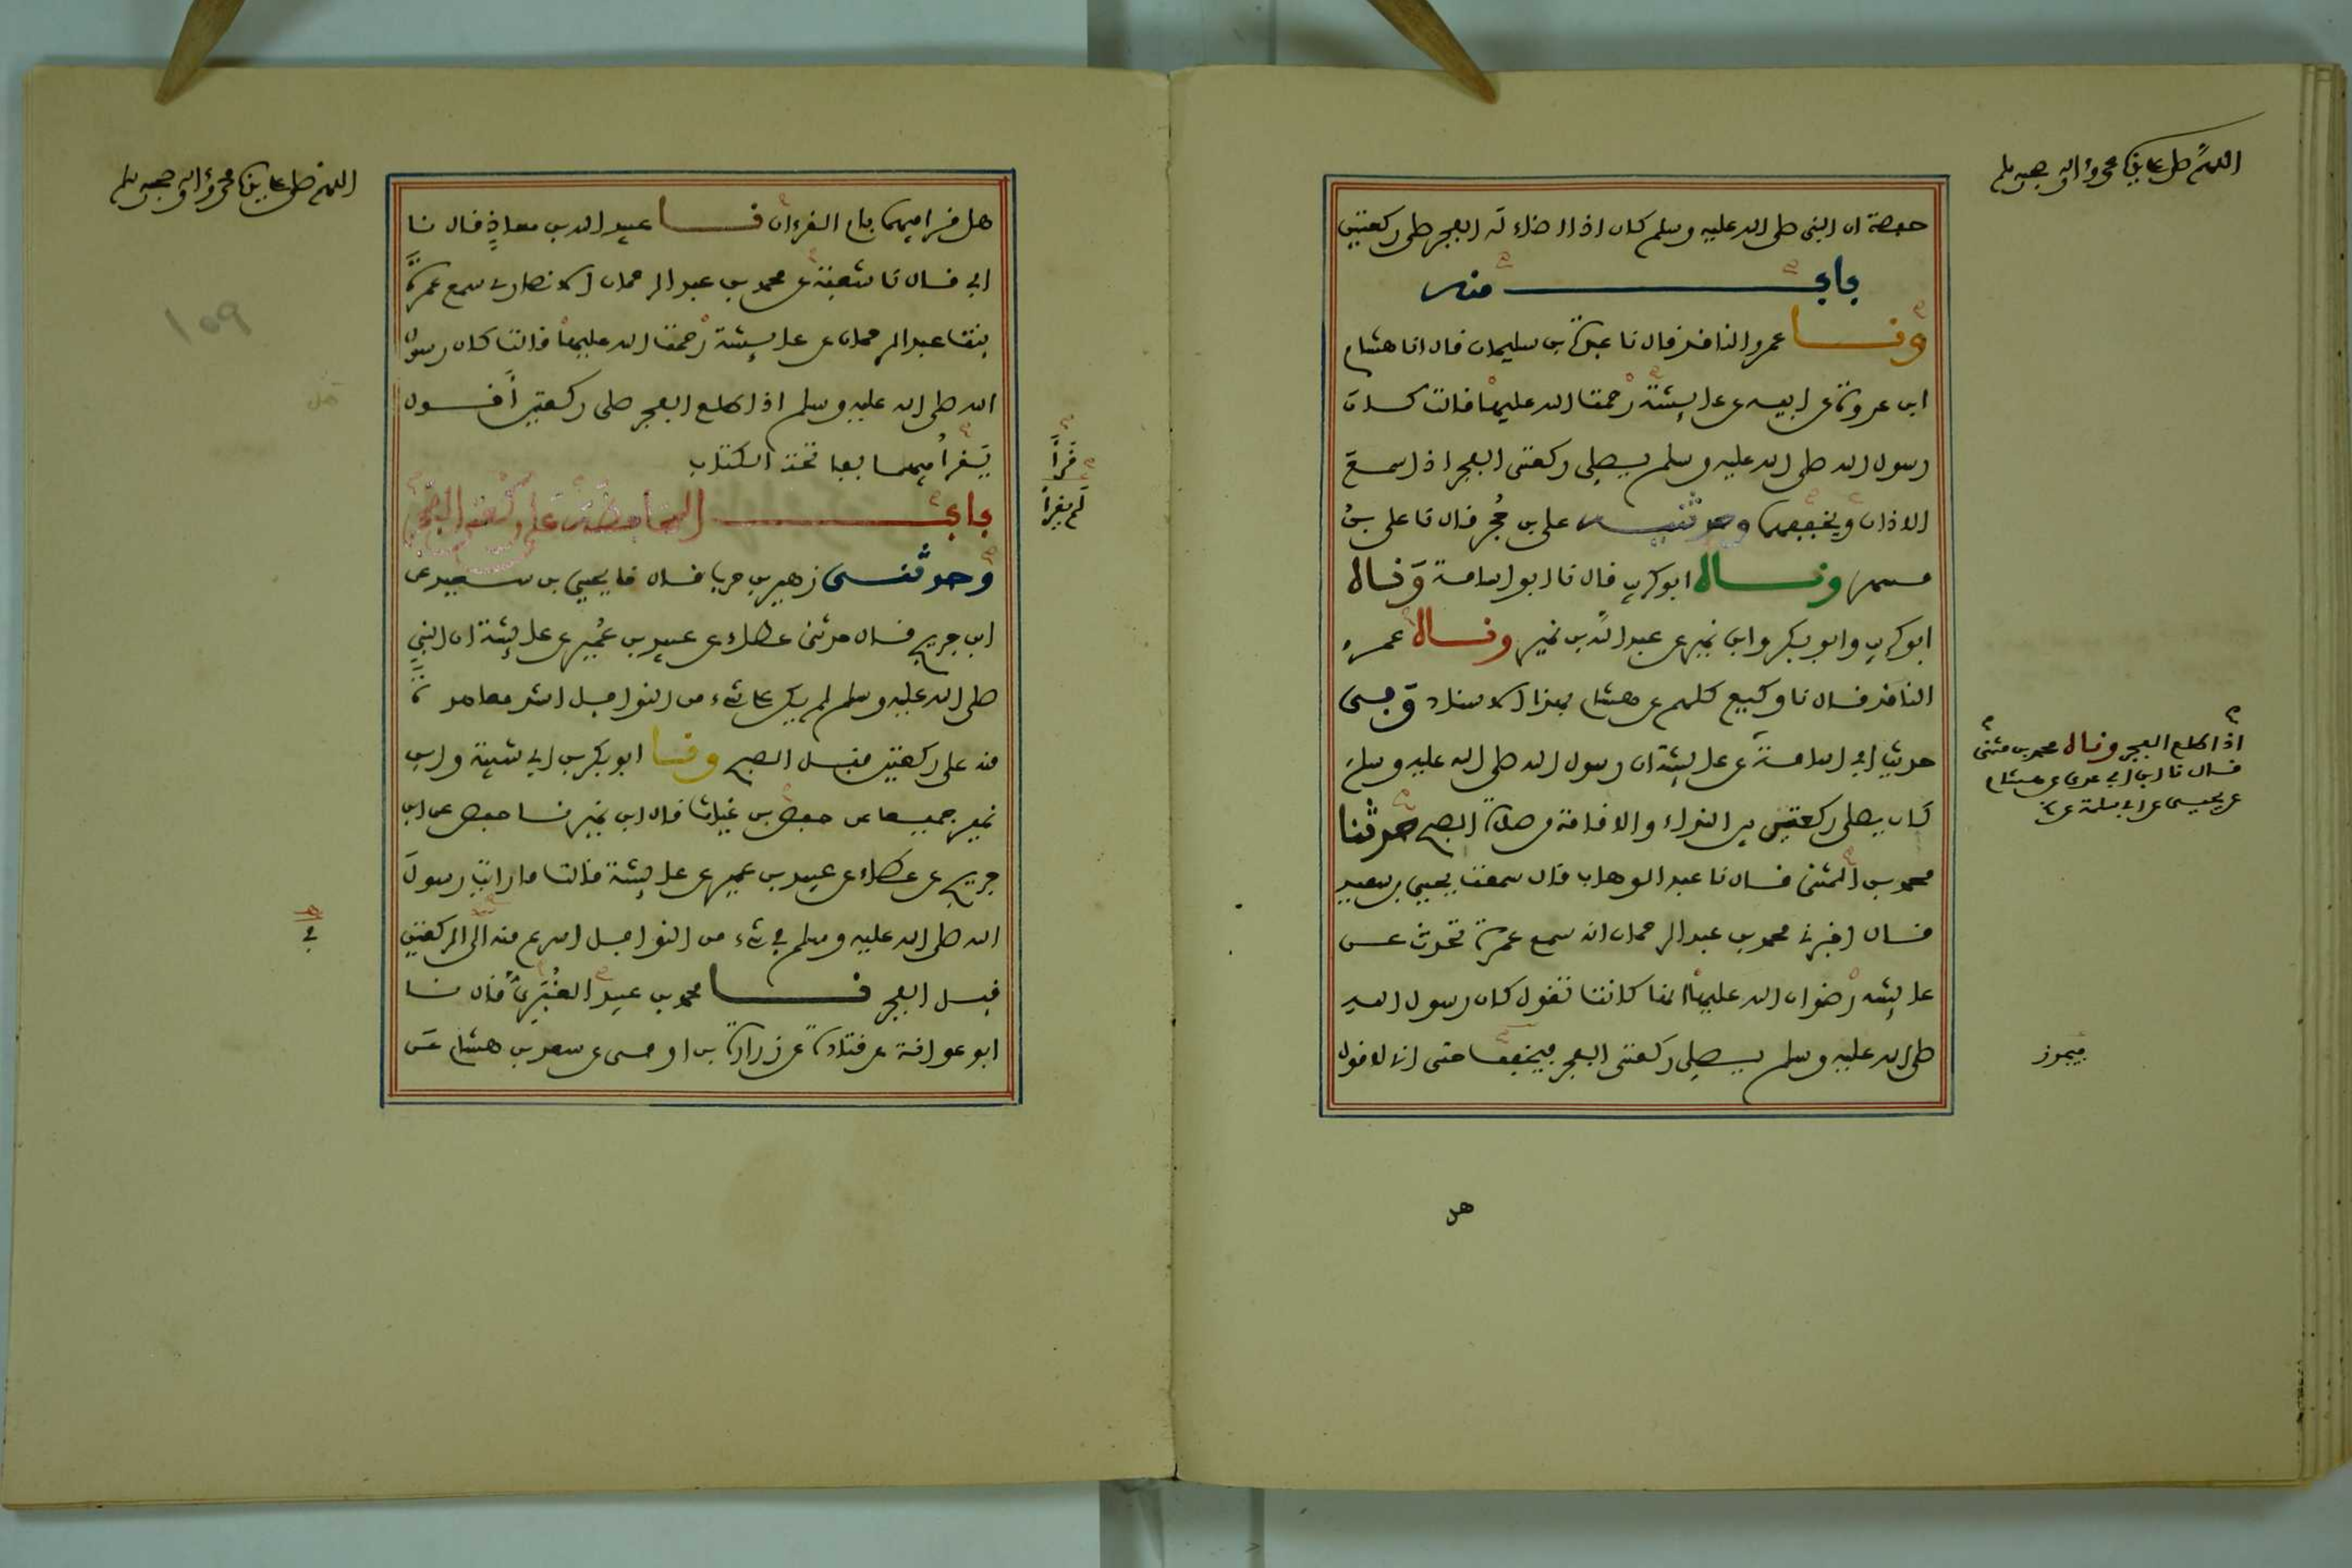 اللهم صل على سيدنا محمد وءاله وصحبه وسلم
حفصة ان النبي صلى الله عليه وسلم كان اذا اضاء له الفجر صلى ركعتين
باب منه
ونا عمرو الناقد قال نا عبدة بن سليمان قال انا هشام
ابن عروة عن ابيه عن عايشة رحمت الله عليها قالت كان
رسول الله صلى الله عليه وسلم يصلي ركعتي الفجر اذا سمع
الاذان ويخففهما وحدثنيه علي بن حجر قال نا علي بن
مسهر وناه ابو كريب قال نا ابو اسامة وناه
ابو كريب وابو بكر وابن نمير عن عبد الله بن نمير وناه عمرو
الناقد قال نا وكيع كلهم عن هشام بهذا الاسناد وفي
حديث ابي اسامة عن عايشة ان رسول الله صلى الله عليه وسلم
كان يصلي ركعتين بين النداء والاقامة من صلاة الصبح حدثنا
محمد بن المثنى قال نا عبد الوهاب قال سمعت يحيى بن سعيد
قال اخبرني محمد بن عبد الرحمان انه سمع عمرة تحدث عن
عايشة رضوان الله عليها انها كانت تقول كان رسول الله
صلى الله عليه وسلم يصلي ركعتي الفجر فيخفف حتى اني لاقول
اذا طلع الفجر وناه محمد بن مثنى
قال نا ابن ابي عدي عن هشام
عن يحيى عن ابي سلمة عن
فيجوز
هل
اللهم صل على سيدنا محمد وءاله وصحبه وسلم
هل قرا فيهما بام القرءان نا عبيد الله بن معاذ قال نا
ابي قال نا شعبة عن محمد بن عبد الرحمان الانصاري سمع عمرة
بنت عبد الرحمان عن عايشة رحمت الله عليها قالت كان رسول
الله صلى الله عليه وسلم اذا طلع الفجر صلى ركعتين أقول
يقرأ فيهما بفاتحة الكتاب
باب المحافظة على ركعتي الفجر
وحدثني زهير بن حرب قال نا يحيى بن سعيد عن
ابن جريج قال حدثني عطاء عن عبيد بن عمير عن عايشة ان النبي
صلى الله عليه وسلم لم يكن على شيء من النوافل اشد معاهدة
منه على ركعتين قبل الصبح ونا ابو بكر بن ابي شيبة وابن
نمير جميعا عن حفص بن غياث قال ابن نمير نا حفص عن ابن
جريج عن عطاء عن عبيد بن عمير عن عايشة قالت ما رايت رسول
الله صلى الله عليه وسلم في شيء من النوافل اسرع منه الى الركعتين
قبل الفجر نا محمد بن عبيد الغبري قال نا
ابو عوانة عن قتادة عن زرارة بن اوفى عن سعد بن هشام عن
قرأ
لم يقرأ
159